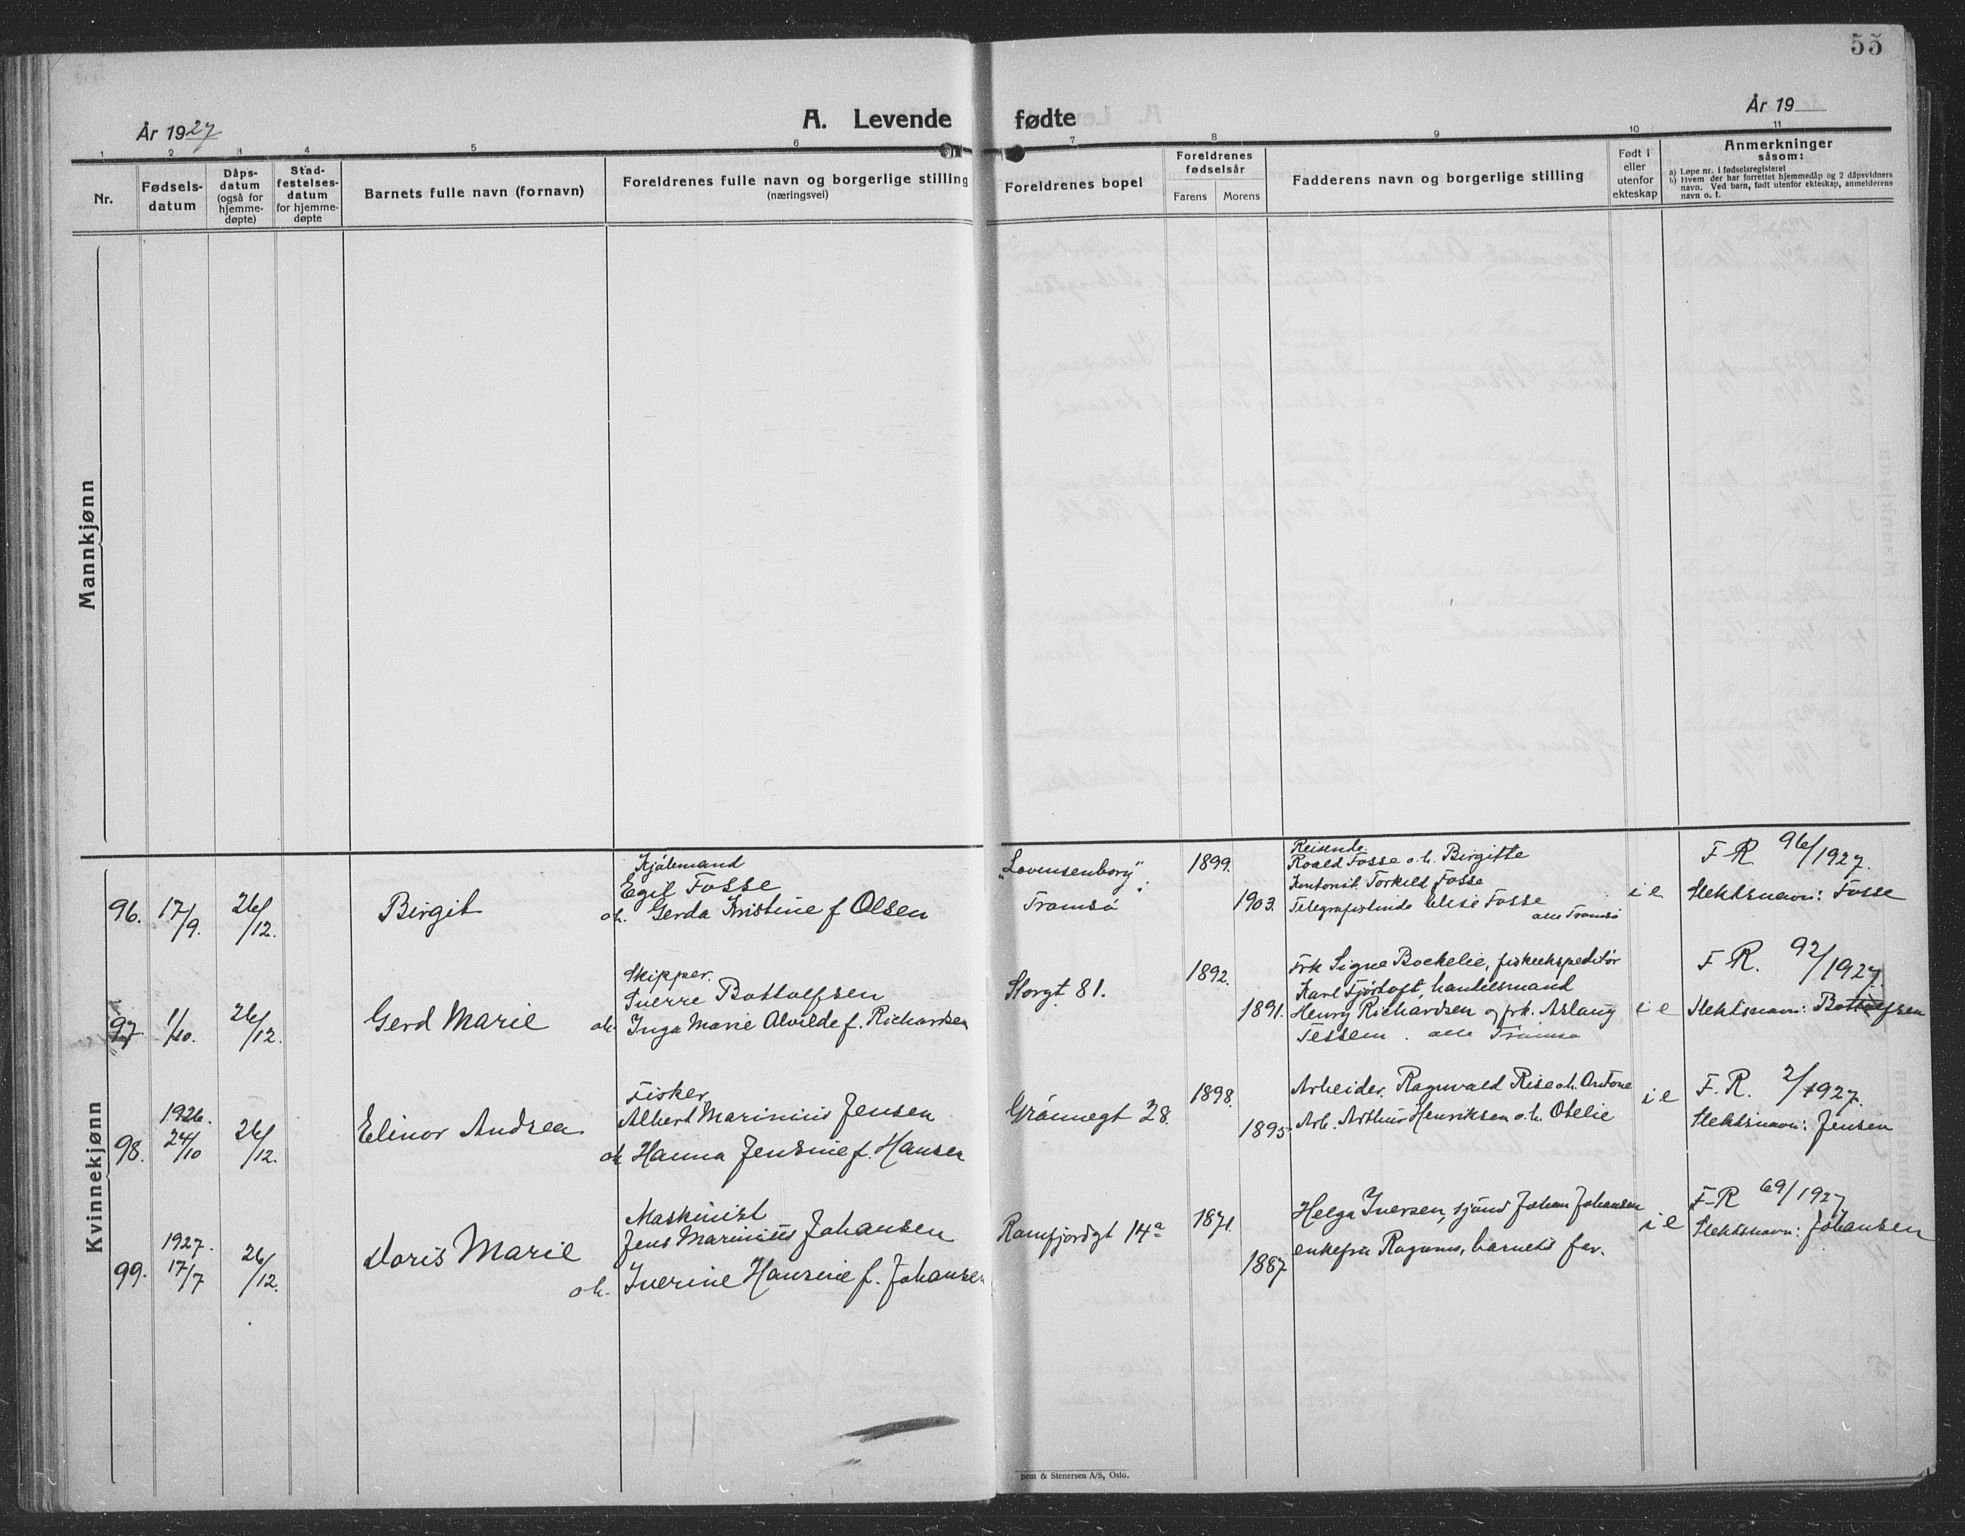 55
År 1927
A. Levende fødte
År 19
1 2 3 4 5 6 7 8 9 10 11
Nr.
Fødsels-
datum
Dåps-
datum
(også for
hjemme-
døpte)
Stad-
festelses-
datum
for hjemme-
døpte
Barnets fulle navn (fornavn)
Foreldrenes fulle navn og borgerlige stilling
(næringsvei)
Foreldrenes bopel
Foreldrenes
fødselsår
Farens
Morens
Fadderens navn og borgerlige stilling
Født i
eller
utenfor
ekteskap
Anmerkninger
såsom:
a) Løpe nr. i fødselsregisteret
b) Hvem der har forrettet hjemmedåp og 2 dåpsvidners
navn. Ved barn, født utenfor ekteskap, anmelderens
navn o. l.
Mannkjønn
Kvinnekjønn
96. 17/9. 26/12. Birgit
Egil Fosse
oh. Gerda Kristine f Olsen
Tromsø
1899.
1903.
Reisende
Roald Fosse o.h. Birgitte
Kontorist Torkild Fosse
Fosse
alle Tromsø
i e
F-R 96/1927.
Slektsnavn: Fosse
97 1/10. 26/12. Gerd Marie
Skipper.
Sverre Bottolfsen
oh Inga Marie Alvilde f. Richardsen
Storgt 81.
1892.
1891.
Frk Signe Bockelie, fiskeekspeditør
Karl Fjørtoft, handelsmand
Henry Richardsen og frk. Aslaug
Tessem. alle Tromsø
i e
F R. 92/1927.
Slektsnavn: Bottolfsen
98. 1926. 24/10 26/12. Elinor Andrea
Fisker.
Albert Marinius Jensen
oh Hanna Jensine f. Hansen
Grønnegt 28.
1898.
1895
Arbeider. Ragnvald Rise o.h. Antone
Arb. Arthur Henriksen o.h. Otelie
i e
F. R. 2/1927.
Slektsnavn: Jensen
99. 1927. 17/7 26/12. Doris Marie
Maskinist
Jens Marinius Johansen
oh. Iverine Hansine f. Johansen
Ramfjordgt 14a
1871
1887
Helga Iversen, sjømd Johan Johansen
enkefru Ragnas, barnets far.
i e
F-R 69/1927
Slektsnavn: Johansen
Sem & Stenersen A/S, Oslo.